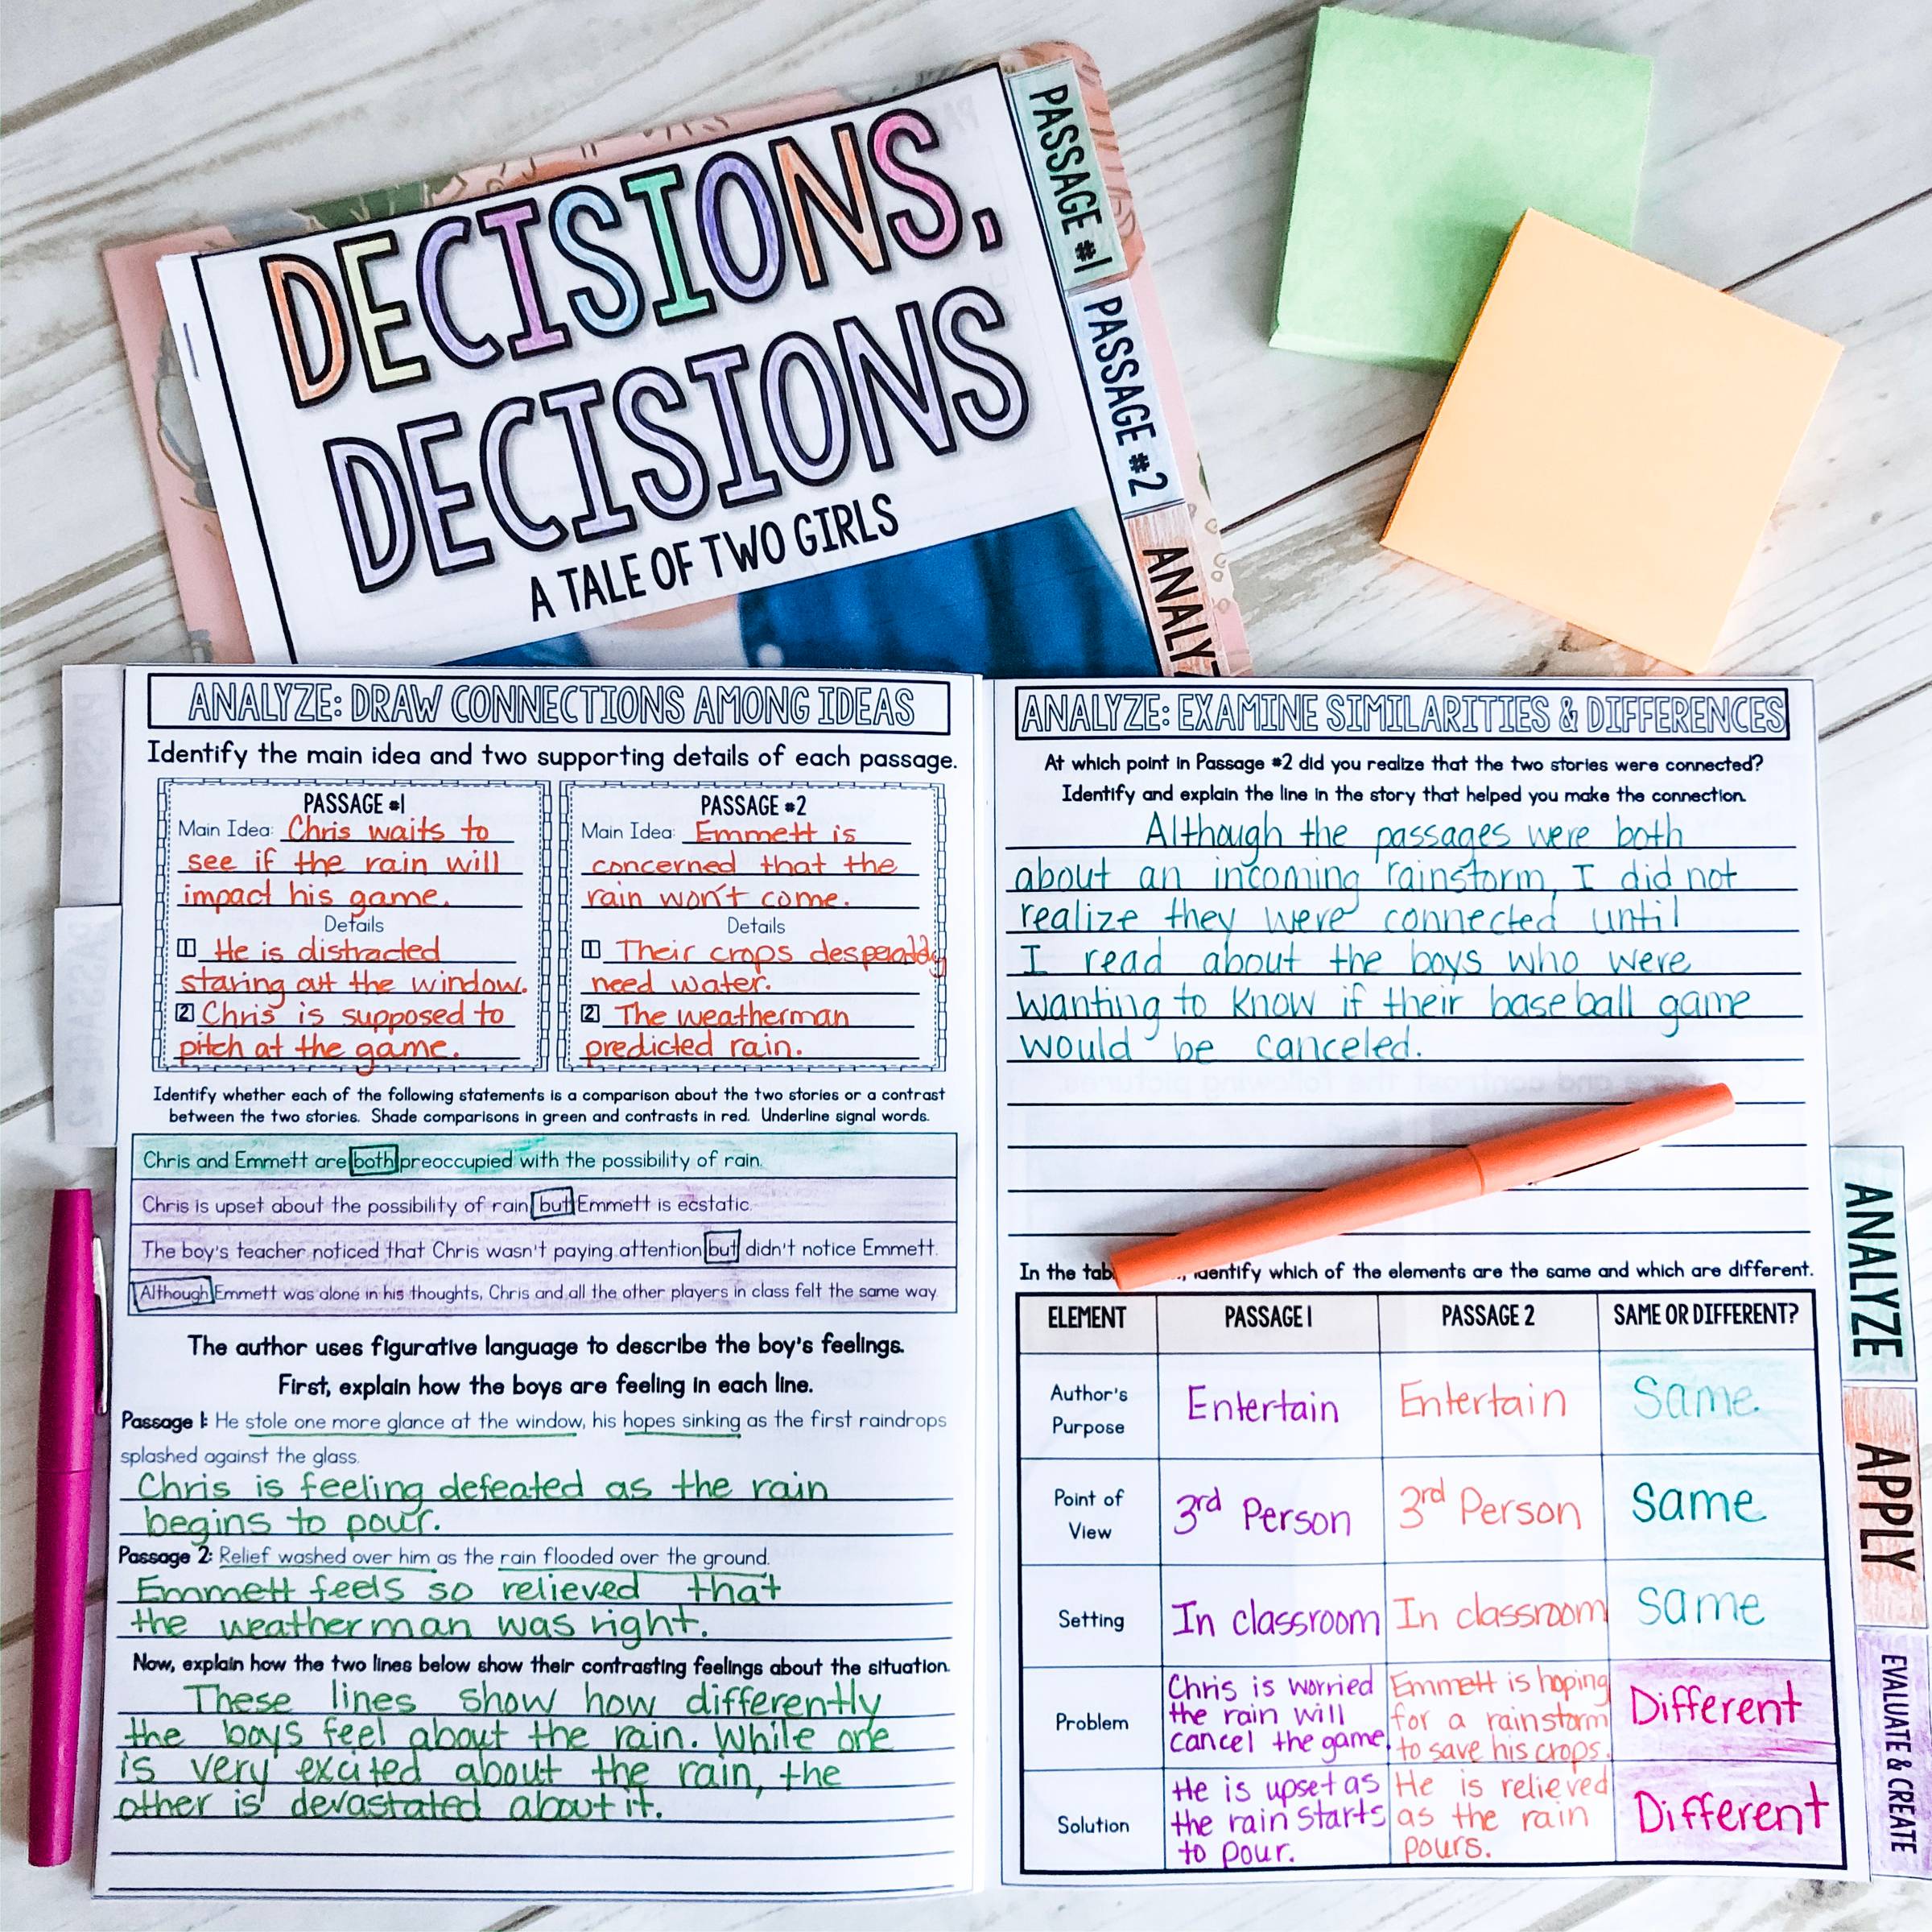 DECISIONS,
DECISIONS
A TALE OF TWO GIRLS
PASSAGE #1
PASSAGE #2
ANALY
ANALYZE: DRAW CONNECTIONS AMONG IDEAS
Identify the main idea and two supporting details of each passage.
PASSAGE #1
Main Idea: Chris waits to
see if the rain will
impact his game.
Details
1 He is distracted
staring out the window.
2 Chris is supposed to
pitch at the game.
PASSAGE #2
Main Idea: Emmett is
concerned that the
rain won't come.
Details
1 Their crops desperately
need water.
2 The weatherman
predicted rain.
Identify whether each of the following statements is a comparison about the two stories or a contrast
between the two stories. Shade comparisons in green and contrasts in red. Underline signal words.
Chris and Emmett are both preoccupied with the possibility of rain.
Chris is upset about the possibility of rain but Emmett is ecstatic.
The boy's teacher noticed that Chris wasn't paying attention but didn't notice Emmett.
Although Emmett was alone in his thoughts, Chris and all the other players in class felt the same way.
The author uses figurative language to describe the boy's feelings.
First, explain how the boys are feeling in each line.
Passage 1: He stole one more glance at the window, his hopes sinking as the first raindrops
splashed against the glass.
Chris is feeling defeated as the rain
begins to pour.
Passage 2: Relief washed over him as the rain flooded over the ground.
Emmett feels so relieved that
the weatherman was right.
Now, explain how the two lines below show their contrasting feelings about the situation.
These lines show how differently
the boys feel about the rain. While one
is very excited about the rain, the
other is devastated about it.
ANALYZE: EXAMINE SIMILARITIES & DIFFERENCES
At which point in Passage #2 did you realize that the two stories were connected?
Identify and explain the line in the story that helped you make the connection.
Although the passages were both
about an incoming rainstorm, I did not
realize they were connected until
I read about the boys who were
wanting to know if their baseball game
would be canceled.
In the identify which of the elements are the same and which are different.
ELEMENT PASSAGE 1 PASSAGE 2 SAME OR DIFFERENT?
Author's Purpose Entertain Entertain Same
Point of View 3rd Person 3rd Person Same
Setting In classroom In classroom Same
Problem Chris is worried the rain will cancel the game. Emmett is hoping for a rainstorm to save his crops. Different
Solution He is upset as the rain starts to pour. He is relieved as the rain pours. Different
ANALYZE
APPLY
EVALUATE & CREATE